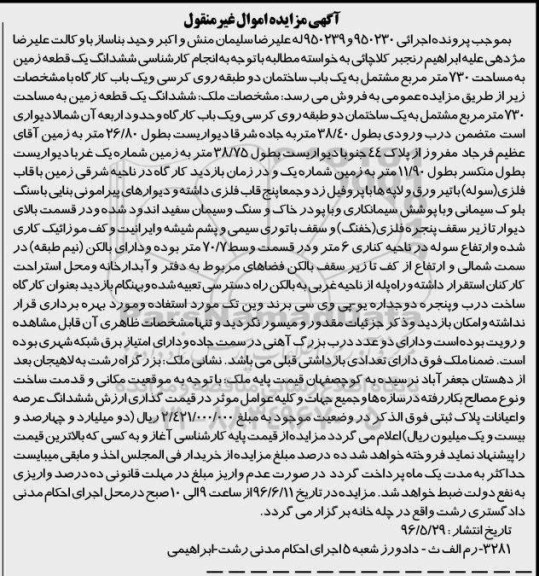 آگهی مزایده اموال غیرمنقول
بموجب پرونده اجرائی ۹۵۰۲۳۰ و ۹۵۰۲۳۹ له علیرضا سلیمان منش و اکبر وحید بناساز با وکالت علیرضا
مژدهی علیه ابراهیم رنجبر کلاچائی به خواسته مطالبه با توجه به انجام کارشناسی ششدانگ یک قطعه زمین
به مساحت ۷۳۰ متر مربع مشتمل به یک باب ساختمان دو طبقه روی کرسی ویک باب کارگاه با مشخصات
زیر از طریق مزایده عمومی به فروش می رسد: مشخصات ملک: ششدانگ یک قطعه زمین به مساحت
۷۳۰ متر مربع مشتمل به یک ساختمان دو طبقه روی کرسی ویک باب کارگاه وحدود اربعه آن شمالا دیواری
است متضمن درب ورودی بطول ۳۸/۴۰ متر به جاده شرقا دیواریست بطول ۲۶/۸۰ متر به زمین آقای
عظیم فرجاد مفروز از پلاک ۴۴ جنوبا دیواریست بطول ۳۸/۷۵ متر به زمین شماره یک غربا دیواریست
بطول منکسر بطول ۱۱/۹۰ متر به زمین شماره یک و در زمان بازدید کارگاه در ناحیه شرقی زمین با قاب
فلزی (سوله) باتیر ورق و لایه ها با پروفیل زد وجمعا پنج قاب فلزی داشته و دیوارهای پیرامونی بنایی با سنگ
بلوک سیمانی و با پوشش سیمانکاری و با پودر خاک و سنگ و سیمان سفید اندود شده و در قسمت بالای
دیوار تا زیر سقف پنجره فلزی (خفنگ) و سقف با توری سیمی و پشم شیشه وایرانیت و کف موزائیک کاری
شده وارتفاع سوله در ناحیه کناری ۶ متر و در قسمت وسط ۷/۷۰ متر بوده و دارای بالکن (نیم طبقه) در
سمت شمالی و ارتفاع از کف تا زیر سقف بالکن فضاهای مربوط به دفتر و آبدارخانه و محل استراحت
کارکنان استقرار داشته و راه پله از ناحیه غربی به بالکن راه دسترسی تعبیه شده و بهنگام بازدید بعنوان کارگاه
ساخت درب و پنجره دوجداره یو-پی وی سی برند وین تک مورد استفاده و مورد بهره برداری قرار
نداشته وامکان بازدید و ذکر جزئیات مقدور و میسور نگردید و تنها مشخصات ظاهری آن قابل مشاهده
و رویت بوده است و دارای دو عدد درب بزرگ آهنی در سمت جاده و دارای امتیاز برق شبکه شهری بوده
است. ضمنا ملک فوق دارای تعدادی بازداشتی قبلی می باشد. نشانی ملک: بزرگراه رشت به لاهیجان بعد
از دهستان جعفر آباد نرسیده به کوچصفهان قیمت پایه ملک: با توجه به موقعیت مکانی و قدمت ساخت
ونوع مصالح بکار رفته در سازه ها و جمیع جهات و کلیه عوامل موثر در قیمت گذاری ارزش ششدانگ عرصه
واعیانات پلاک ثبتی فوق الذکر در وضعیت موجود به مبلغ ۲/۴۲۱/۰۰۰/۰۰۰ ریال (دو میلیارد و چهارصد و
بیست و یک میلیون ریال) اعلام می گردد مزایده از قیمت پایه کارشناسی آغاز و به کسی که بالاترین قیمت
را پیشنهاد نماید فروخته خواهد شد ده درصد مبلغ مزایده از خریدار فی المجلس اخذ و مابقی میبایست
حداکثر به مدت یک ماه پرداخت گردد در صورت عدم واریز مبلغ در مهلت قانونی ده درصد واریزی
به نفع دولت ضبط خواهد شد. مزایده در تاریخ ۹۶/۶/۱۱ از ساعت ۹ الی ۱۰ صبح در محل اجرای احکام مدنی
دادگستری رشت واقع در چله خانه برگزار می گردد.
تاریخ انتشار: ۹۶/۵/۲۹
۳۲۸۱-رم الف ث - دادورز شعبه ۵ اجرای احکام مدنی رشت-ابراهیمی